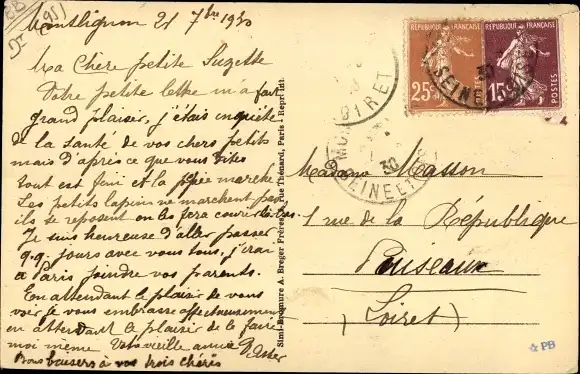 Montlignon 21 7bre 1930
Ma Chère petite Suzette
Votre petite lettre m'a fait
grand plaisir, j'étais inquiète
de la santé de vos chers petits
mais d'après ce que vous dites
tout est fini et la marche
Les petits lapins ne marchent pas
ils se reposent on les fera courir
Je suis heureuse d'aller passer
q.q. jours avec vous tous, j'irai
à Paris joindre vos parents.
En attendant le plaisir de vous
voir je vous embrasse affectueusement
en attendant le plaisir de le faire
moi même Votre vieille amie
Bons baisers à vos trois chéris
Simi-Bromure A. Breger Frères, rue Thénard, Paris
RÉPUBLIQUE FRANÇAISE
25c
POSTES
RÉPUBLIQUE FRANÇAISE
15c
POSTES
LOIRET
SEINE ET OISE
30
Madame Masson
1 rue de la République
Puiseaux
(Loiret)
PB